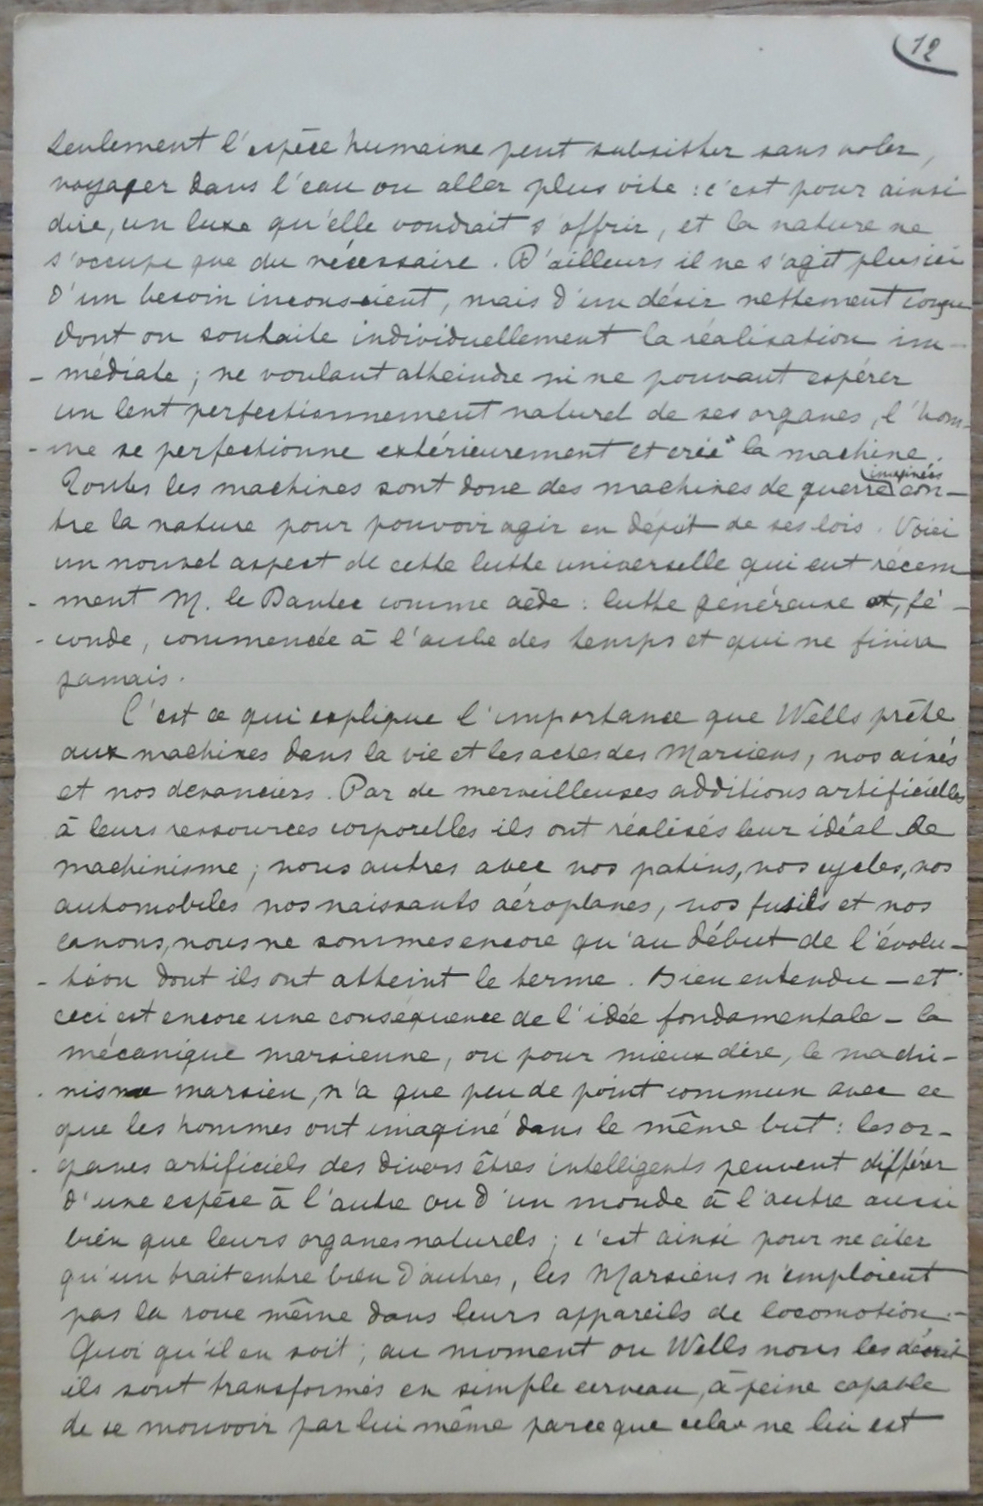 12
Seulement l'espèce humaine peut subsister sans voler,
voyager dans l'eau ou aller plus vite : c'est pour ainsi
dire, un luxe qu'elle voudrait s'offrir, et la nature ne
s'occupe que du nécessaire. D'ailleurs il ne s'agit plus ici
d'un besoin inconscient, mais d'un désir nettement conçu
dont on souhaite individuellement la réalisation im-
- médiate ; ne voulant atteindre ni ne pouvant espérer
un lent perfectionnement naturel de ses organes, l'hom-
- me se perfectionne extérieurement et crée la machine.
imaginées
Toutes les machines sont donc des machines de guerre con-
tre la nature pour pouvoir agir en dépit de ses lois. Voici
un nouvel aspect de cette lutte universelle qui eut récem
- ment M. le Dantec comme aède : lutte généreuse et, fé-
- conde, commencée à l'aube des temps et qui ne finira
jamais.
C'est ce qui explique l'importance que Wells prête
aux machines dans la vie et les actes des Marsiens, nos aînés
et nos devanciers. Par de merveilleuses additions artificielles
à leurs ressources corporelles ils ont réalisés leur idéal de
machinisme ; nous autres avec nos patins, nos cycles, nos
automobiles nos naissants aéroplanes, nos fusils et nos
canons, nous ne sommes encore qu'au début de l'évolu-
- tion dont ils ont atteint le terme. Bien entendu - et
ceci est encore une conséquence de l'idée fondamentale - la
mécanique marsienne, ou pour mieux dire, le machi-
- nisme marsien, n'a que peu de point commun avec ce
que les hommes ont imaginé dans le même but : les or-
- ganes artificiels des divers êtres intelligents peuvent différer
d'une espèce à l'autre ou d'un monde à l'autre aussi
bien que leurs organes naturels ; c'est ainsi pour ne citer
qu'un trait entre bien d'autres, les Marsiens n'emploient
pas la roue même dans leurs appareils de locomotion.-
Quoi qu'il en soit ; au moment ou Wells nous les décrit
ils sont transformés en simple cerveau, à peine capable
de se mouvoir par lui même parce que cela ne lui est